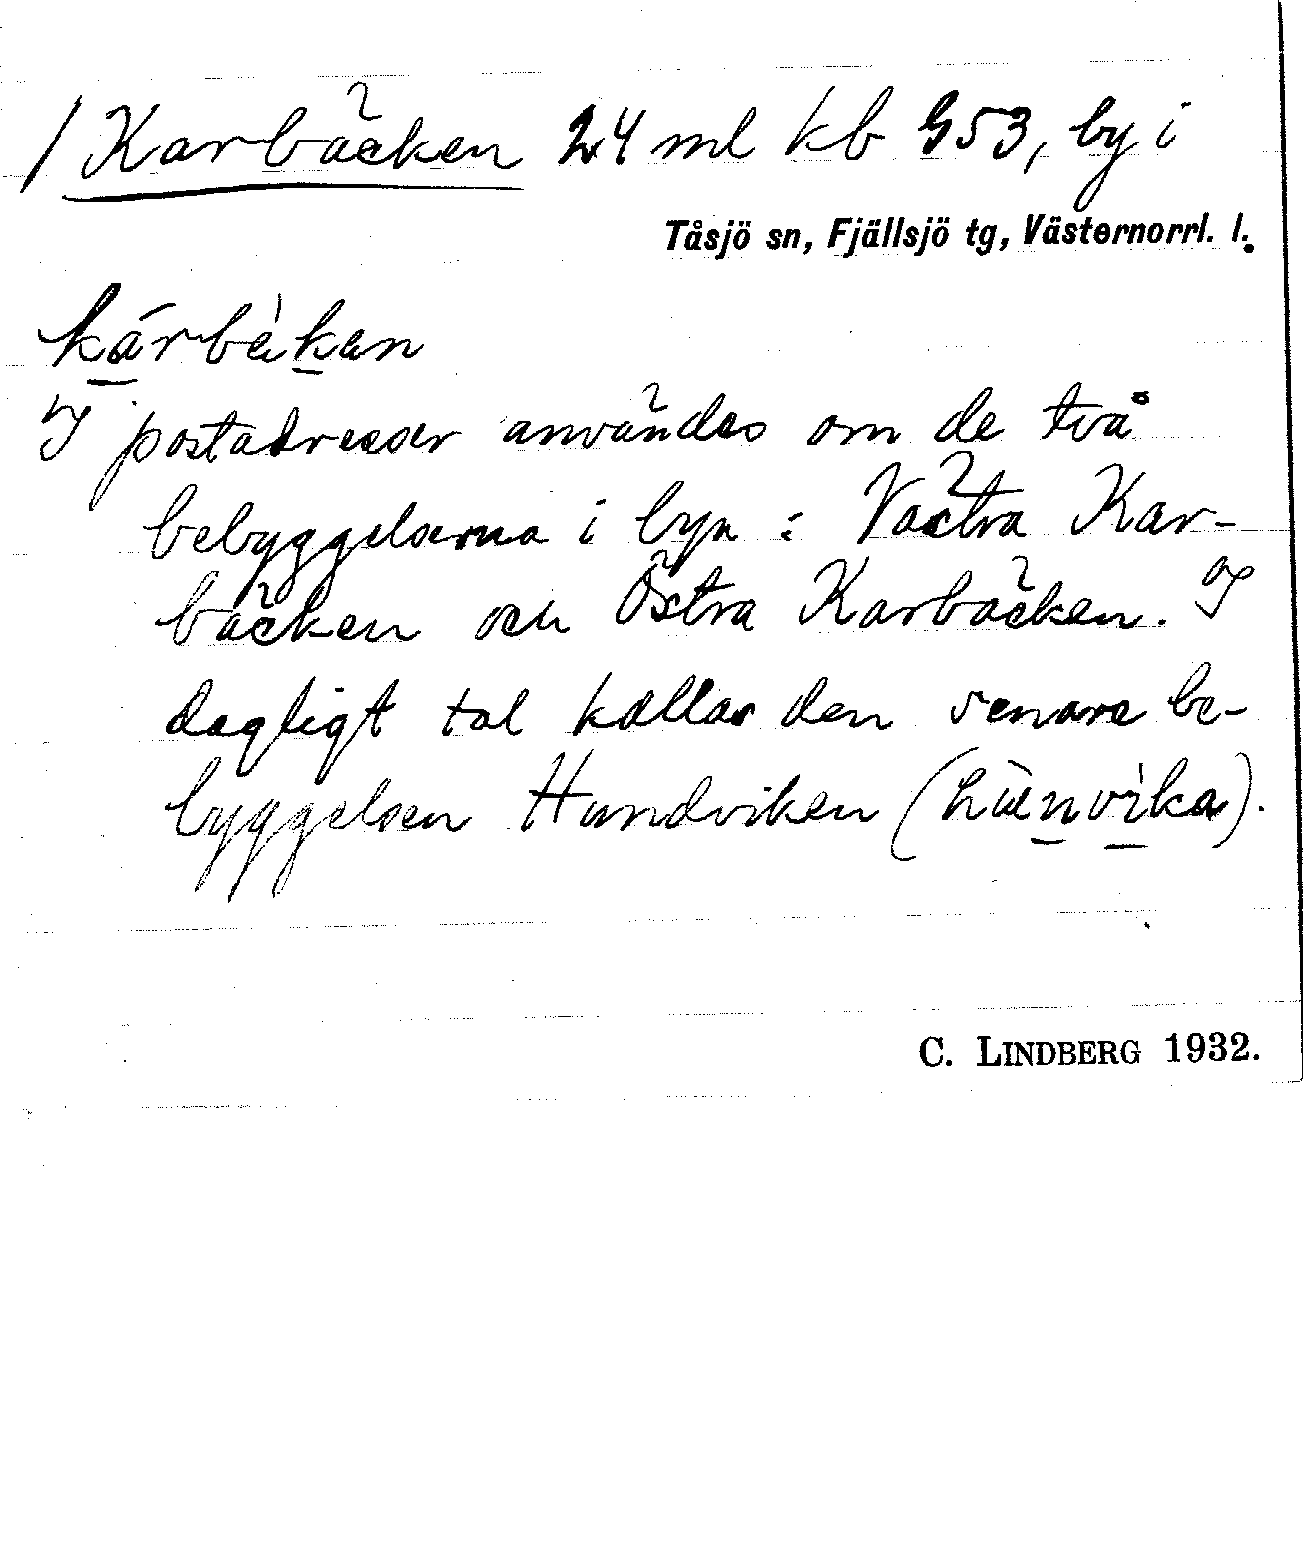 / Karbäcken 24 ml kb 953, by i
Tåsjö sn, Fjällsjö tg, Västernorrl. l.
kárbèkan
I postadresser användes om de två
bebyggelserna i byn: Västra Kar-
bäcken och Östra Karbäcken. I
dagligt tal kallas den senare be-
byggelsen Hundviken
C. LINDBERG 1932.